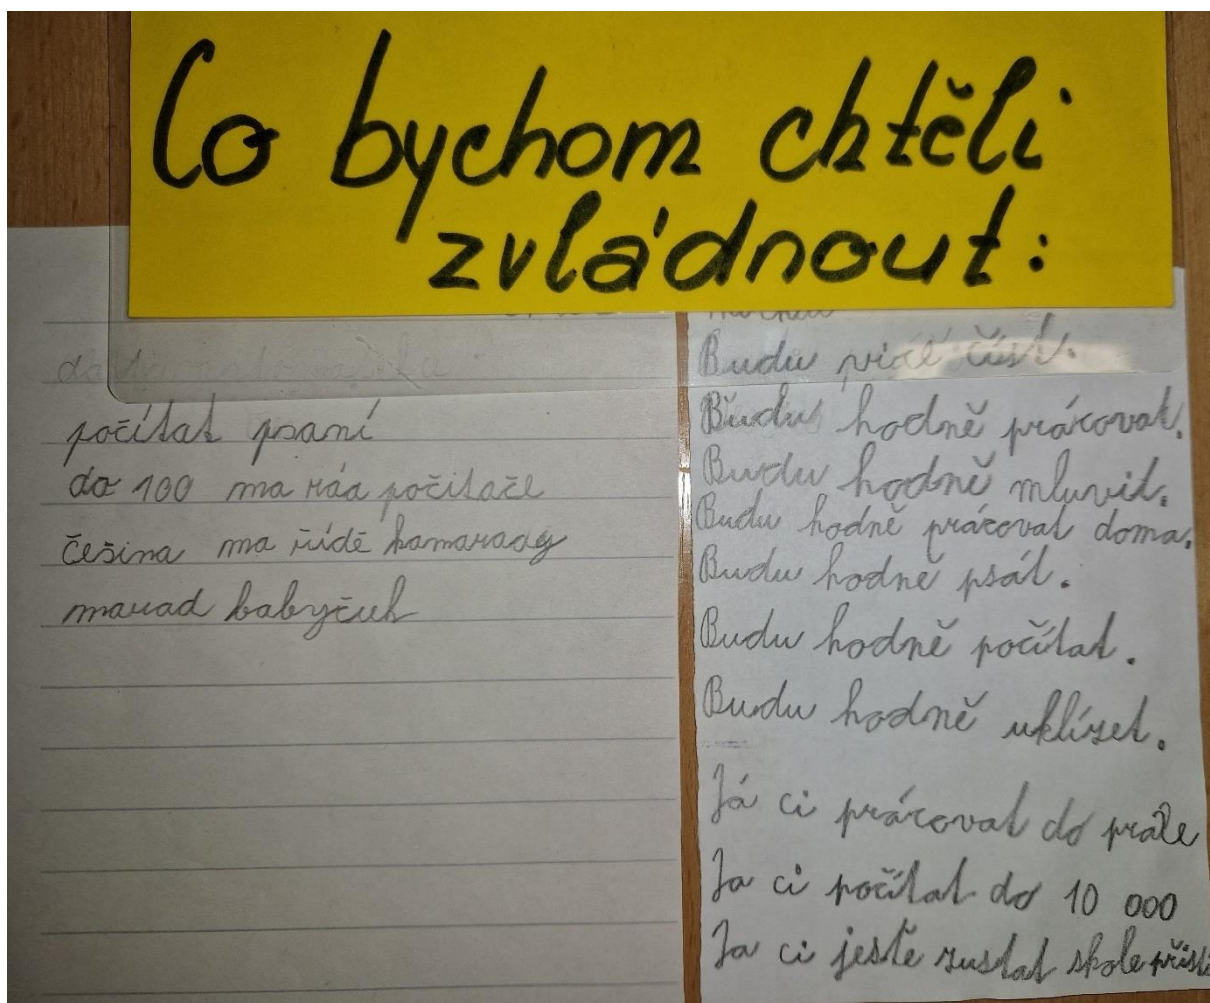 Co bychom chtěli
zvládnout:
počítat psaní
do 100 ma ráa počitače
češina ma řídě kamarady
marad babyčuh
Budu více číst.
Budu hodně prácovat.
Budu hodně mluvit.
Budu hodně prácovat doma.
Budu hodně psát.
Budu hodně počítat.
Budu hodně uklízet.
Já ci prácovat do práce
Ja ci počítat do 10 000
Ja ci ješte zustat skole